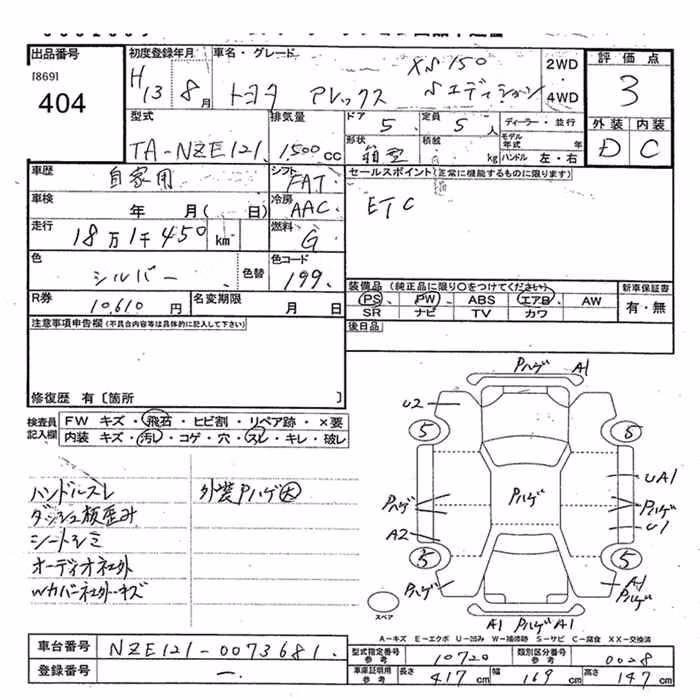 出品番号 初度登録年月 車名・グレード 評価点
[869]
404
H13 8月 トヨタ アレックス XS150 Sエディション 2WD 4WD 3
外装 内装
D C
型式 排気量 ドア 定員 ディーラー・並行
TA-NZE121 1500cc 5 5人 モデル年式 年
形状 積載 ハンドル 左・右
箱型 kg
車歴 シフト セールスポイント(正常に機能するものに限ります)
自家用 FAT
車検 年 月( 日) 冷房 AAC ETC
走行 18万1千450 km 燃料 G
色 シルバー 色替 色コード 199
装備品(純正品に限り○をつけてください) 新車保証書
PS PW ABS エアB AW 有・無
SR ナビ TV カワ
R券 10,610円 名変期限 月 日
後日品
注意事項申告欄(不具合内容等は具体的に記入して下さい)
修復歴 有〔箇所 〕
検査員記入欄
FW キズ・飛石・ヒビ割・リペア跡・×要
内装 キズ・汚レ・コゲ・穴・スレ・キレ・破レ
ハンドルスレ 外装Pハゲ大
ダッシュ板歪み
シートシミ
オーディオネェ外
Wカバーネェ外・キズ
Pハゲ A1
U2
5 5
UA1
Pハゲ Pハゲ Pハゲ
U1
A2
5 5
Pハゲ A1 Pハゲ
A1 Pハゲ A1
スペア
A-キズ E-エクボ U-凹み W-補修跡 S-サビ C-腐食 XX-交換済
車台番号 NZE121-0073681
登録番号 -
型式指定番号 参考 10720 類別区分番号 参考 0028
車庫証明用 参考 長さ 417cm 幅 169cm 高さ 147cm